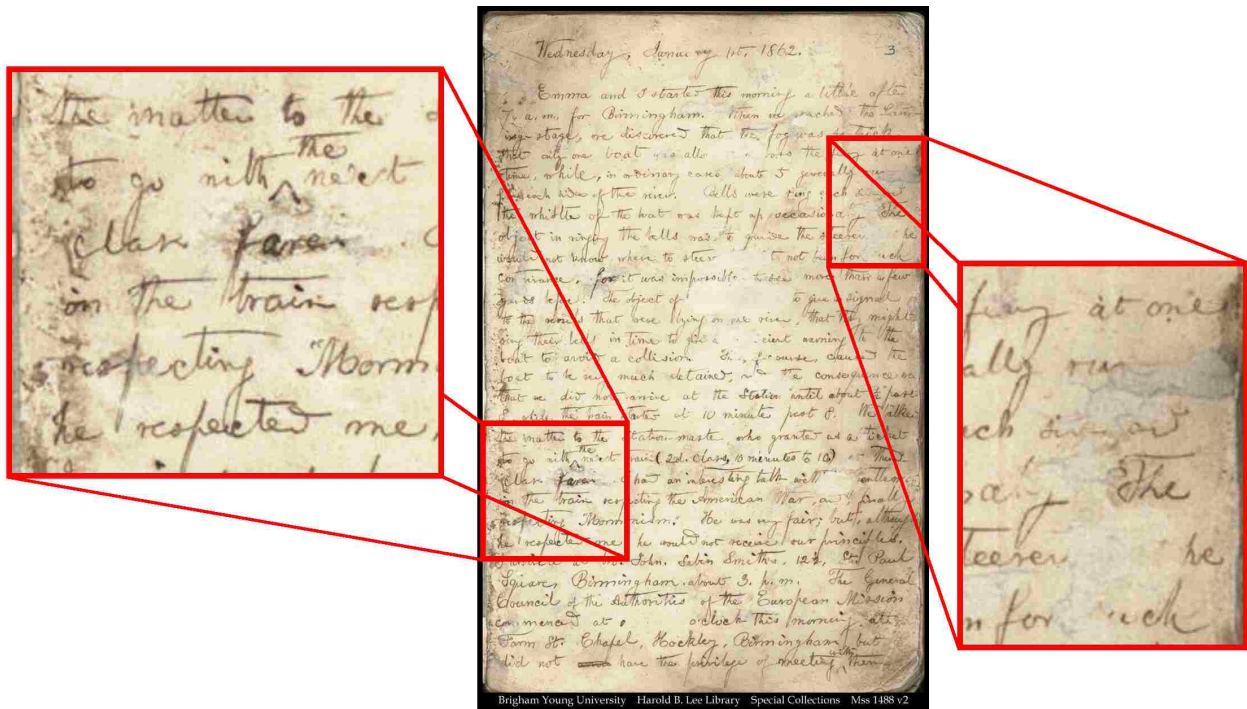 Wednesday, January 1st, 1862. 3
Emma and I started this morning a little after
7 a.m. for Birmingham. When we reached the Land-
ing-stage, we discovered that the fog was so thick
that only one boat was allo the ferry at one
time, while, in ordinary cases about 5 generally run
from each side of the river. Bells were rung each side and
the whistle of the boat was kept up occasionally. The
object in ringing the bells was to guide the steerer he
would not know where to steer not been for such
contrivance, for it was impossible to see more than a few
yards before. The object of to give a signal
to the vessels that were lying on the river, that they might
ring their bells in time to give a cient warning to the
boat to avoid a collision. This, of course, caused the
boat to be very much detained, and the consequence was
that we did not arrive at the Station until about ½ past
8 while the train started at 10 minutes past 8. We talked
the matter to the station-maste who granted us a ticket
to go with the next train (2d. class, 10 minutes to 10) at Third
class fares. I had an interesting talk with gentlemen
in the train respecting the American War, and finally
respecting "Mormonism." He was very fair; but, although
he respected me, he would not receive our principles.
I arrived at Bro. John Sabin Smith's, 12½, St. Paul
Square, Birmingham about 3. p.m. The General
Council of the Authorities of the European Mission
commenced at o'clock this morning, at
Farm St. Chapel, Hockley, Birmingham, but
did not have the privilege of meeting with them
Brigham Young University Harold B. Lee Library Special Collections Mss 1488 v2
the matter to the
to go with the next
class fares
in the train resp
respecting "Morm
he respected me,
ferry at one
ally run
ach side and
The
teerer he
n for uch